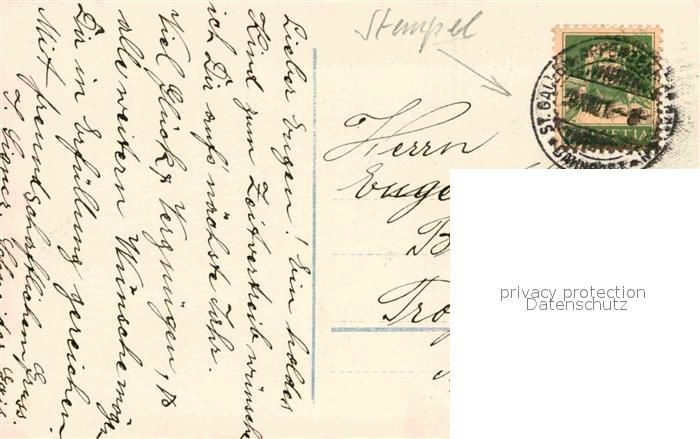 Lieber Eugen! Ein holdes
Kind zum Zeitvertreib wünsche
ich Dir aufs' nächste Jahr.
Viel Glück & Vergnügen, &
alle weitern Wünsche mögen
Dir in Erfüllung gereichen.
Mit freundschaftlichem Gruss
Stempel
ST. GALLEN
HELVETIA
Herrn
Euge
B
Tro
privacy protection
Datenschutz